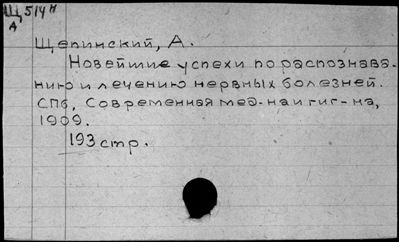 Щ 514 н
А
Щепинский, А.
Новейшие успехи по распознава-
нию и лечению нервных болезней.
СПб, Современная мед-на и гиг-на,
1909.
193 стр.